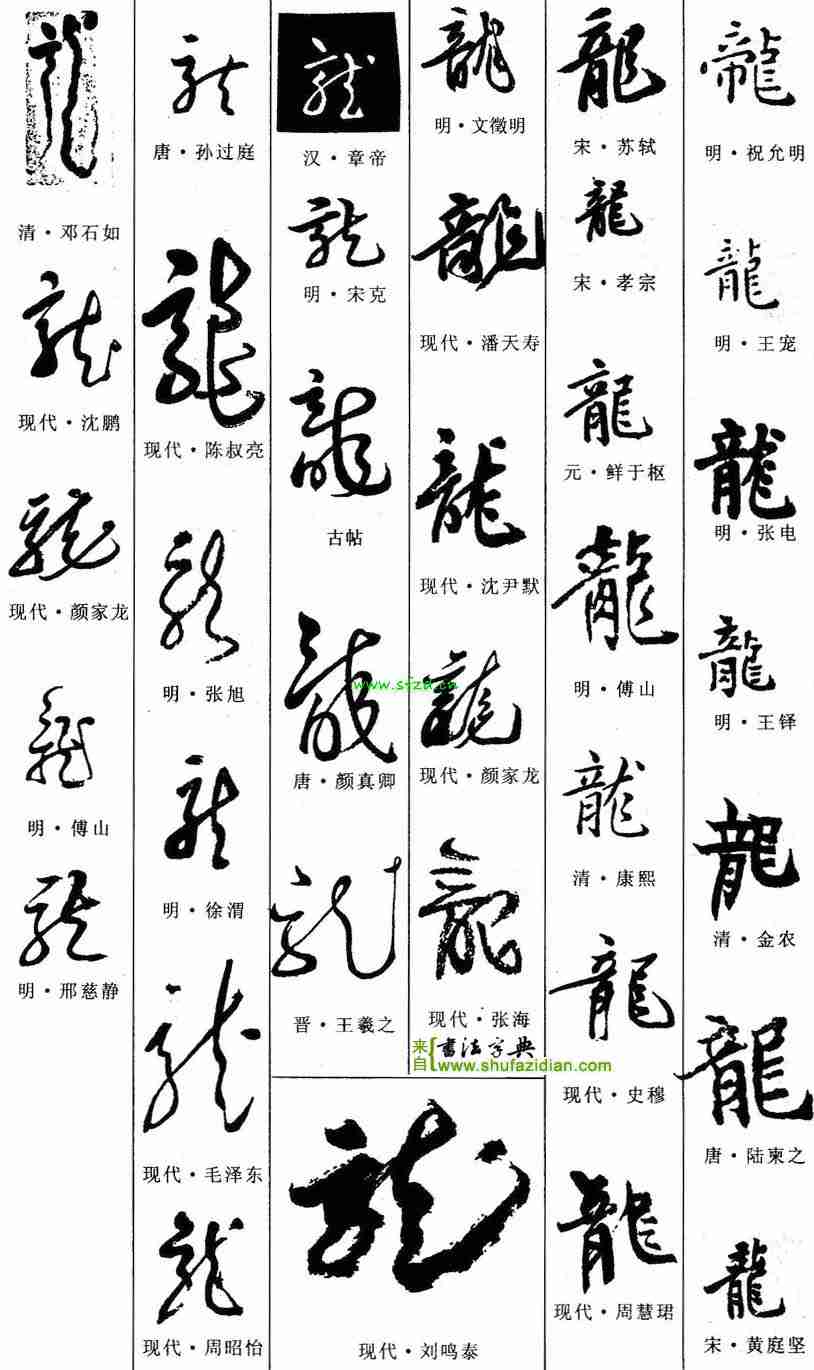 龍
明·祝允明
龍
明·王宠
龍
明·张电
龍
明·王铎
龍
清·金农
龍
唐·陆柬之
龍
宋·黄庭坚
龍
宋·苏轼
龍
宋·孝宗
龍
元·鲜于枢
龍
明·傅山
龍
清·康熙
龍
现代·史穆
龍
现代·周慧珺
龍
明·文徵明
龍
现代·潘天寿
龍
现代·沈尹默
龍
现代·颜家龙
龍
现代·张海
来自{書法字典
www.shufazidian.com
龍
汉·章帝
龍
明·宋克
龍
古帖
龍
www.sfzd.cn
唐·颜真卿
龍
晋·王羲之
龍
现代·刘鸣泰
龍
唐·孙过庭
龍
现代·陈叔亮
龍
明·张旭
龍
明·徐渭
龍
现代·毛泽东
龍
现代·周昭怡
龍
清·邓石如
龍
现代·沈鹏
龍
现代·颜家龙
龍
明·傅山
龍
明·邢慈静